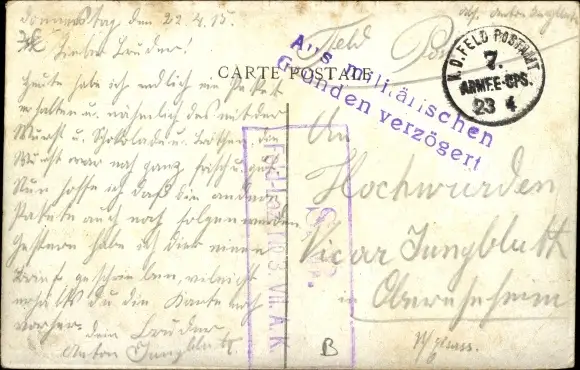 Donnerstag den 22.4.15.
Lieber Bruder!
Heute habe ich endlich ein Paket
erhalten u. nähmlich das mit der
Wurst u. Schokolade u. Butter, die
Wurst war noch ganz frisch u. gut
Nun hoffe ich daß die andern
Pakete auch noch folgen werden
Gestern habe ich dir einen
Brief geschrieben, vielleicht
erhälts du die Karte noch
vorher. dein Bruder
Anton Jungbluth.
Feld Post
CARTE POSTALE
Aus militärischen
Gründen verzögert
K.D. FELD POSTAMT
7.
ARMEE-CPS.
23 4
An
Hochwürden
Vicar Jungbluth
in Obernheim
B